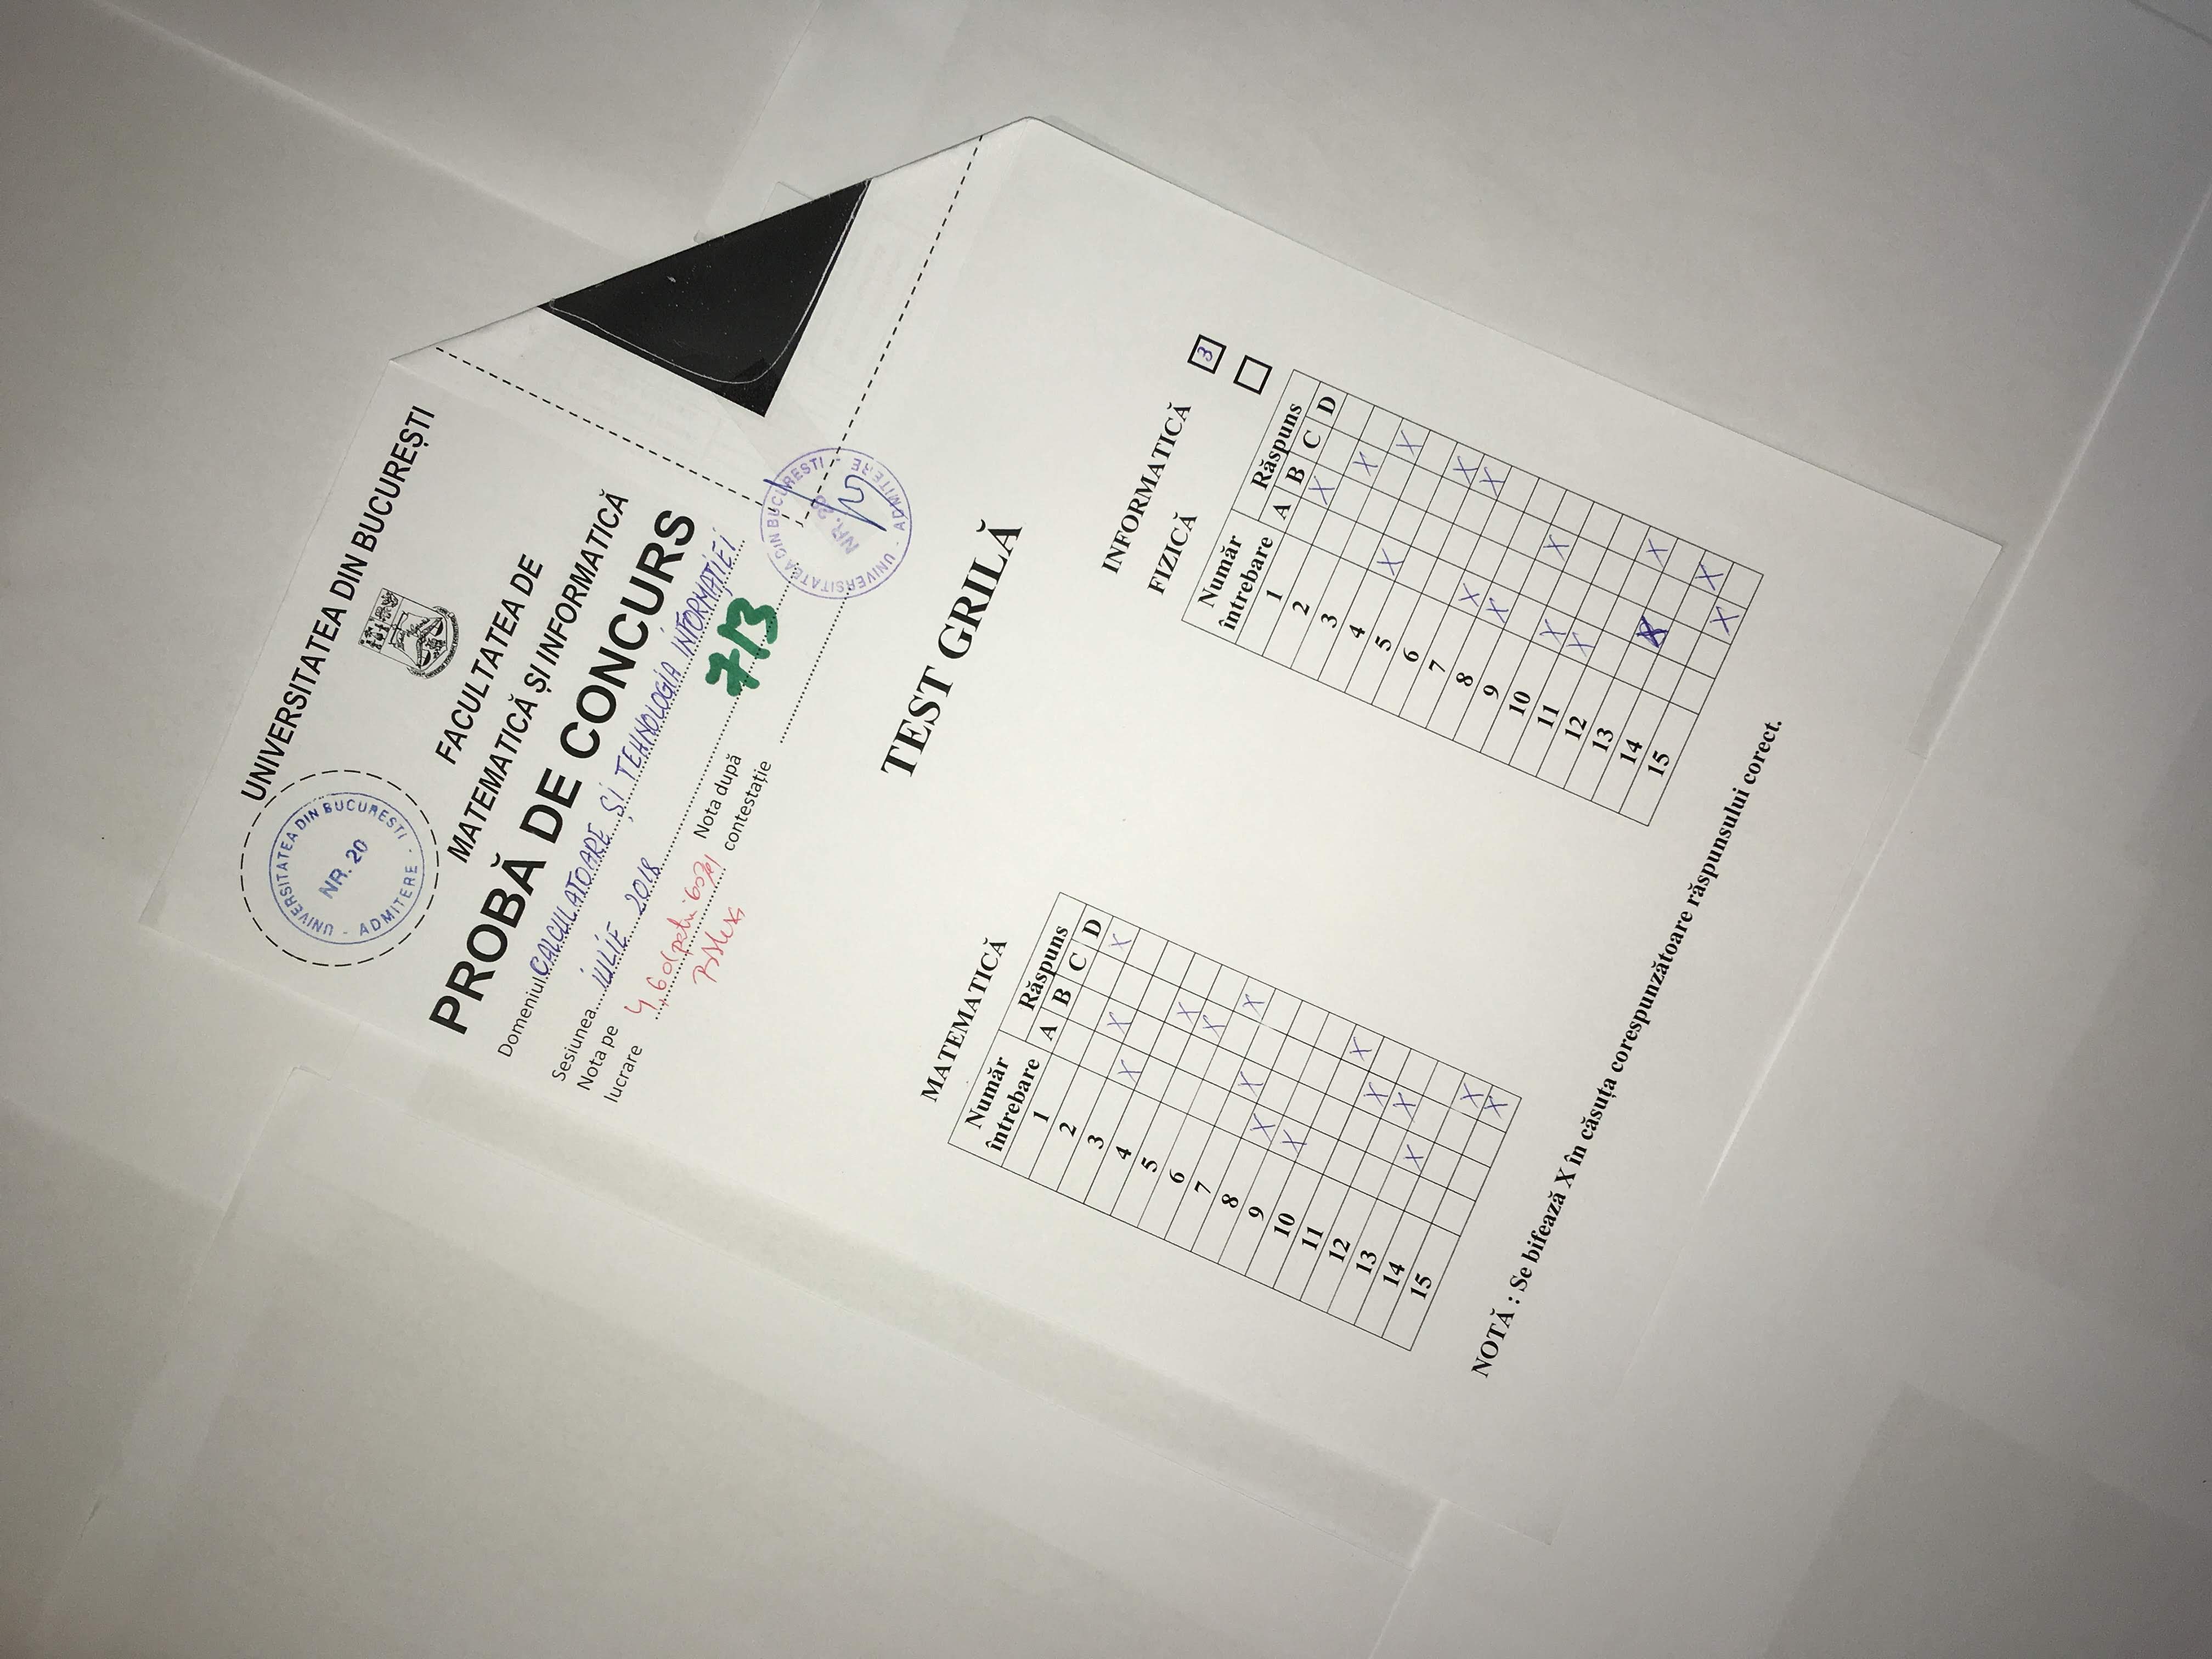 UNIVERSITATEA DIN BUCUREȘTI
UNIVERSITATEA DIN BUCURESTI - ADMITERE -
NR. 20
FACULTATEA DE
MATEMATICĂ ȘI INFORMATICĂ
PROBĂ DE CONCURS
Domeniul CALCULATOARE ȘI TEHNOLOGIA INFORMAȚIEI
Sesiunea IULIE 2018
Nota pe
lucrare
4,60 (patru 60%)
Nota după
contestație
7/B
UNIVERSITATEA DIN BUCURESTI - ADMITERE -
NR. 20
TEST GRILĂ
MATEMATICĂ
Număr
întrebare
Răspuns
A B C D
1 X
2 X
3 X
4 X
5 X
6 X
7 X
8 X
9 X
10 X
11 X
12 X
13 X
14 X
15 X
INFORMATICĂ 3
FIZICĂ
Număr
întrebare
Răspuns
A B C D
1 X
2 X
3 X
4 X
5 X
6 X
7 X
8 X
9 X
10 X
11 X
12 X
13 X
14 X
15 X
NOTĂ : Se bifează X în căsuța corespunzătoare răspunsului corect.